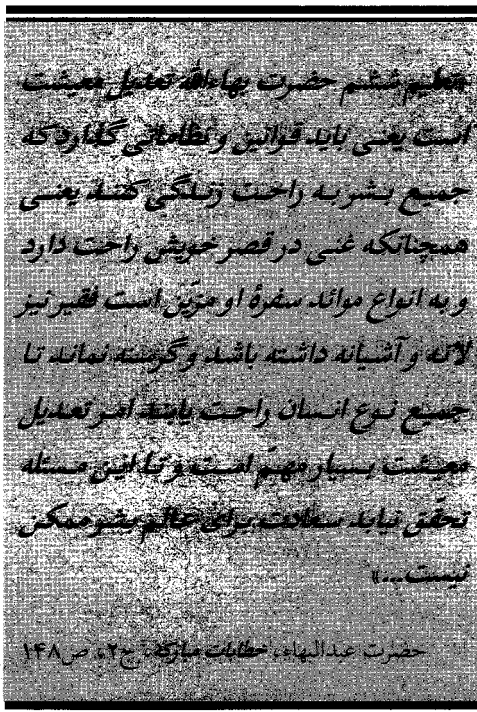 تعلیم ششم حضرت بهاءالله تعدیل معیشت
است یعنی باید قوانین و نظاماتی گذارد که
جمیع بشر به راحت زندگی کنند یعنی
همچنانکه غنی در قصر خویش راحت دارد
و به انواع موائد سفرهٔ او مزیّن است فقیر نیز
لانه و آشیانه داشته باشد و گرسنه نماند تا
جمیع نوع انسان راحت یابند امر تعدیل
معیشت بسیار مهمّ است و تا این مسئله
تحقّق نیابد سعادت برای عالم بشر ممکن
نیست...»
حضرت عبدالبهاء، خطابات مبارکه، ج۲، ص۱۴۸